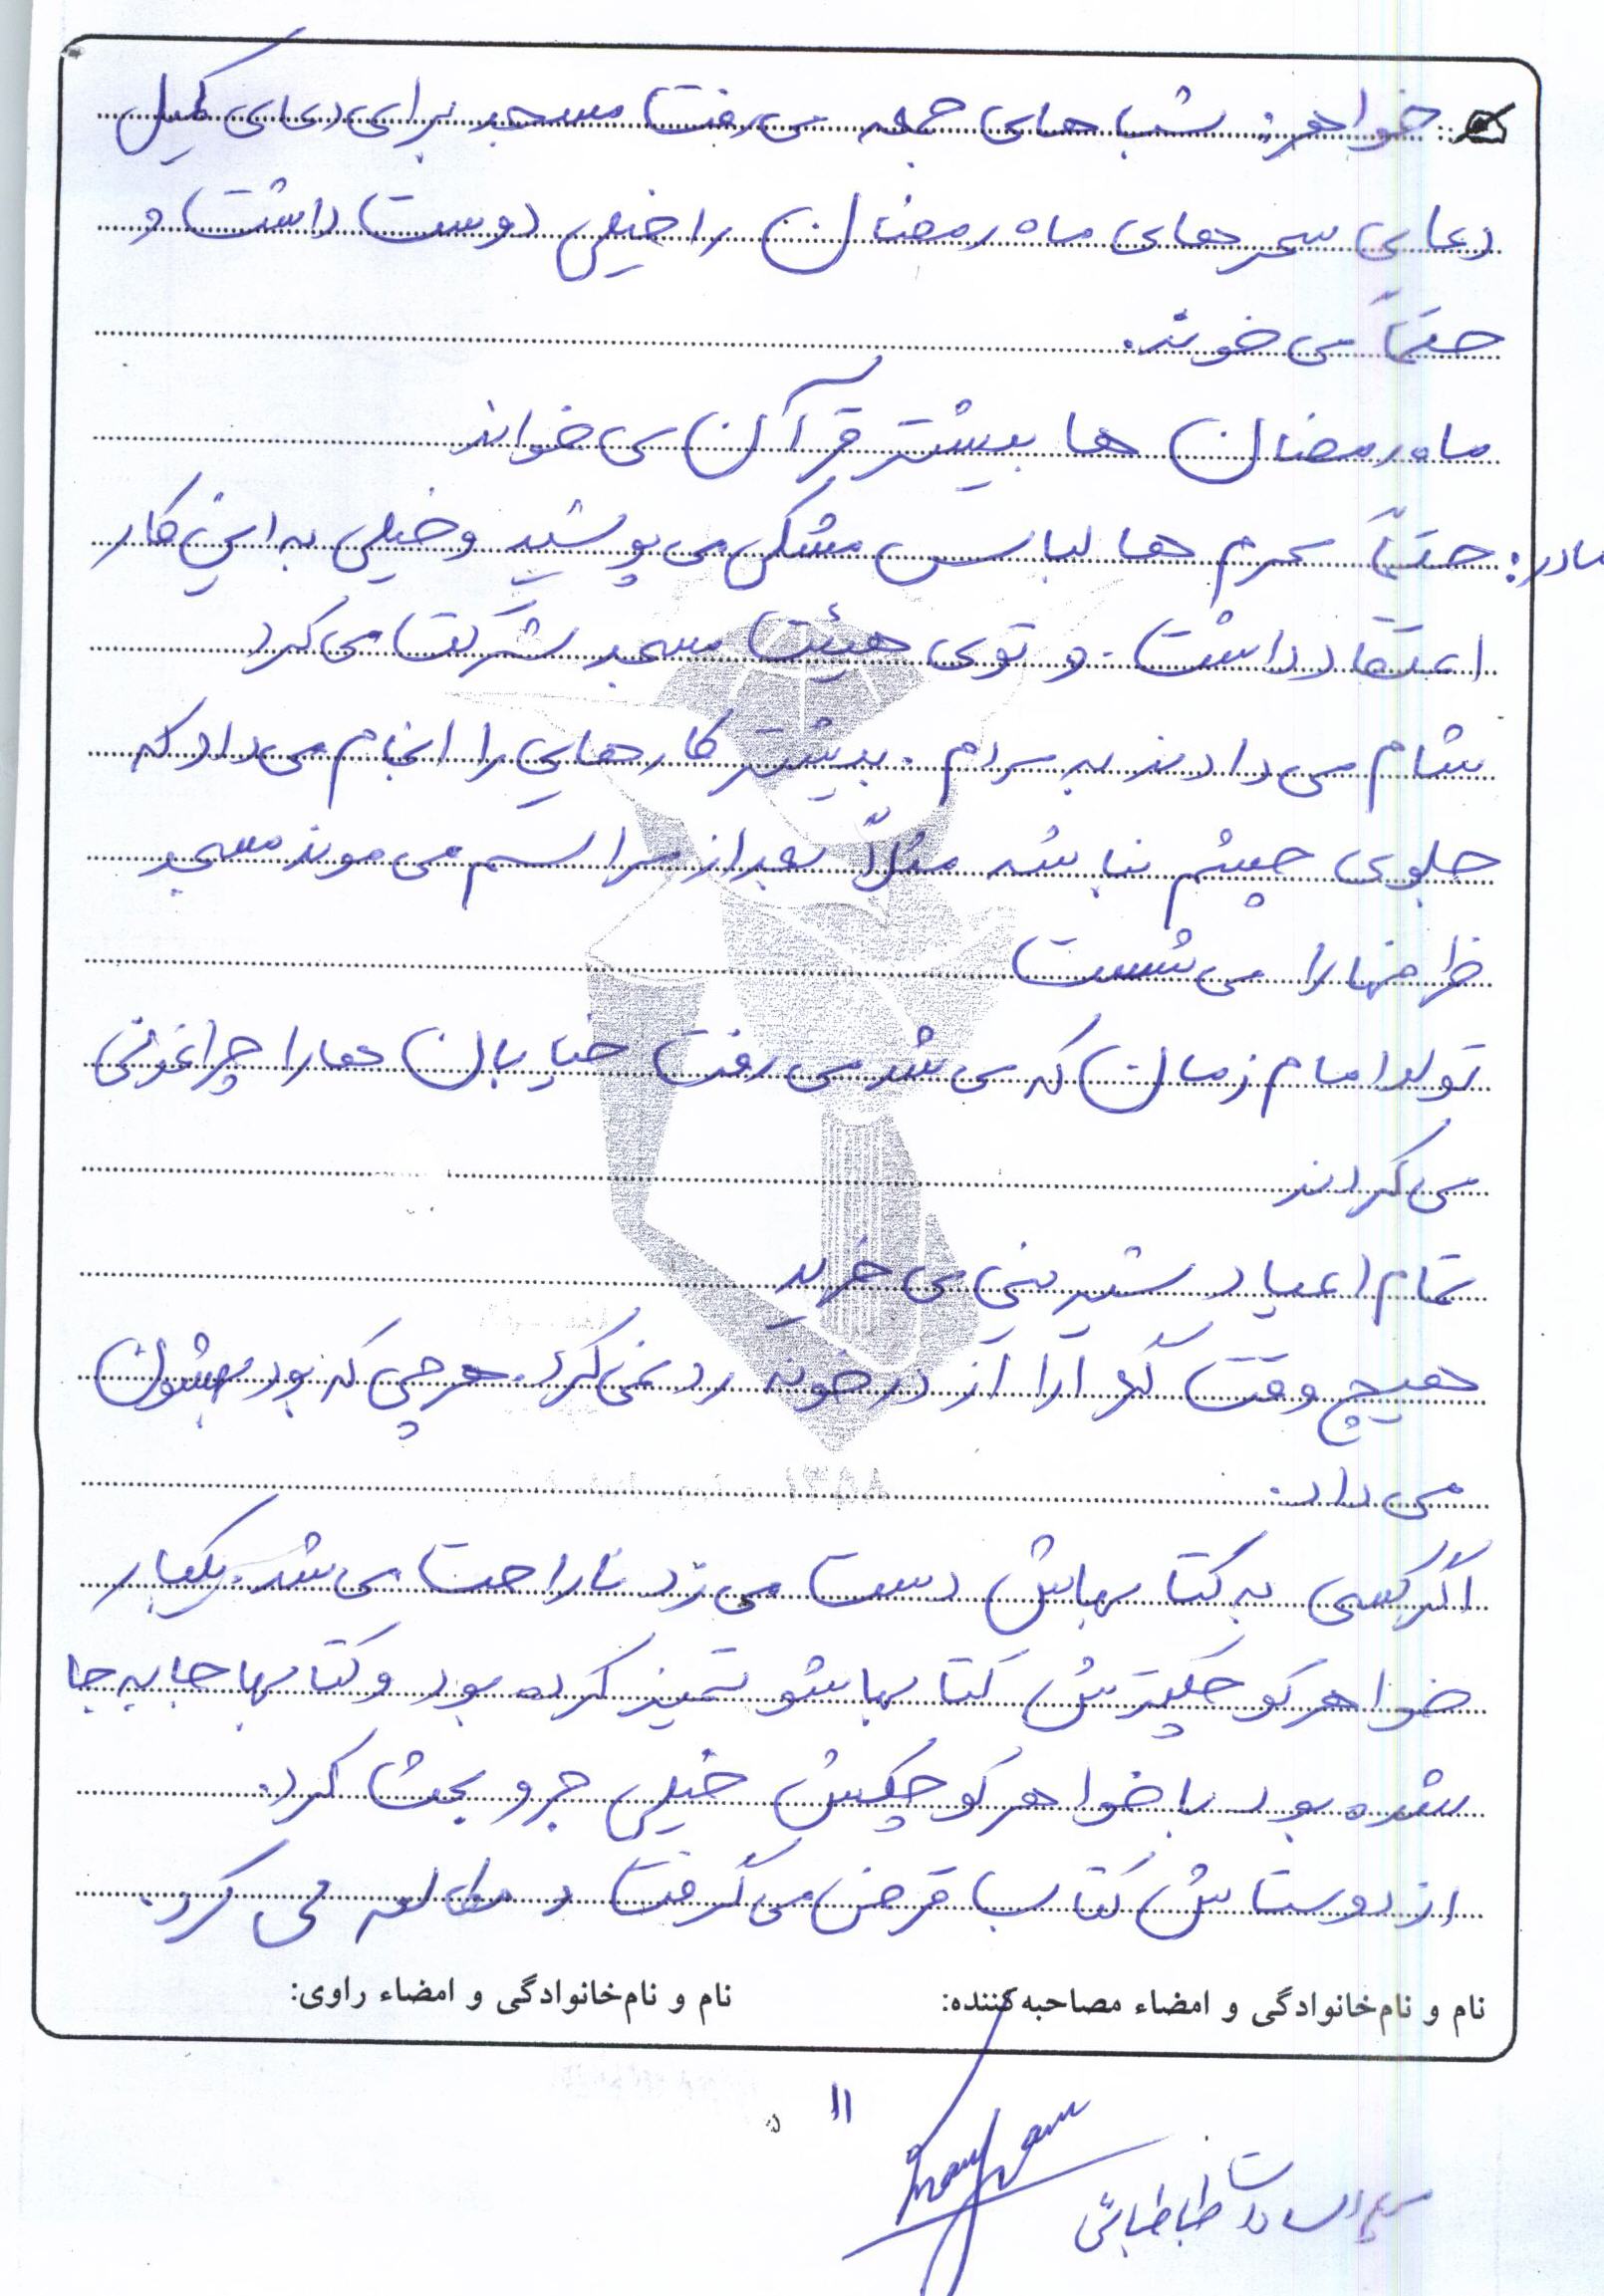 خواهر: شب های جمعه می رفت مسجد برای دعای کمیل
دعای سحرهای ماه رمضان را خیلی دوست داشت و
حتماً می خوند.
ماه رمضان ها بیشتر قرآن می خواند
مادر: حتماً محرم ها لباس مشکی می پوشید و خیلی به این کار
اعتقاد داشت. و توی هیئت مسجد شرکت می کرد
شام می دادند به مردم. بیشتر کارهایی را انجام می داد که
جلوی چشم نباشه مثلاً بعد از مراسم می موند مسجد
ظرفها را می شست
تولد امام زمان که می شد می رفت خیابان ها را چراغونی
می کردند
تمام اعیاد شیرینی می خرید
هیچ وقت گدا را از در خونه رد نمی کرد. هرچی که بود بهشون
می داد.
اگر کسی به کتابهاش دست می زد ناراحت می شد. یکبار
خواهر کوچکترش کتابهاشو تمیز کرده بود و کتابها جابه جا
شده بود با خواهر کوچکش خیلی جرو بحث کرد.
از دوستاش کتاب قرض می گرفت و مطالعه می کرد.
نام و نام‌خانوادگی و امضاء مصاحبه‌کننده:
نام و نام‌خانوادگی و امضاء راوی:
۱۱
مریم السادات طباطبائی